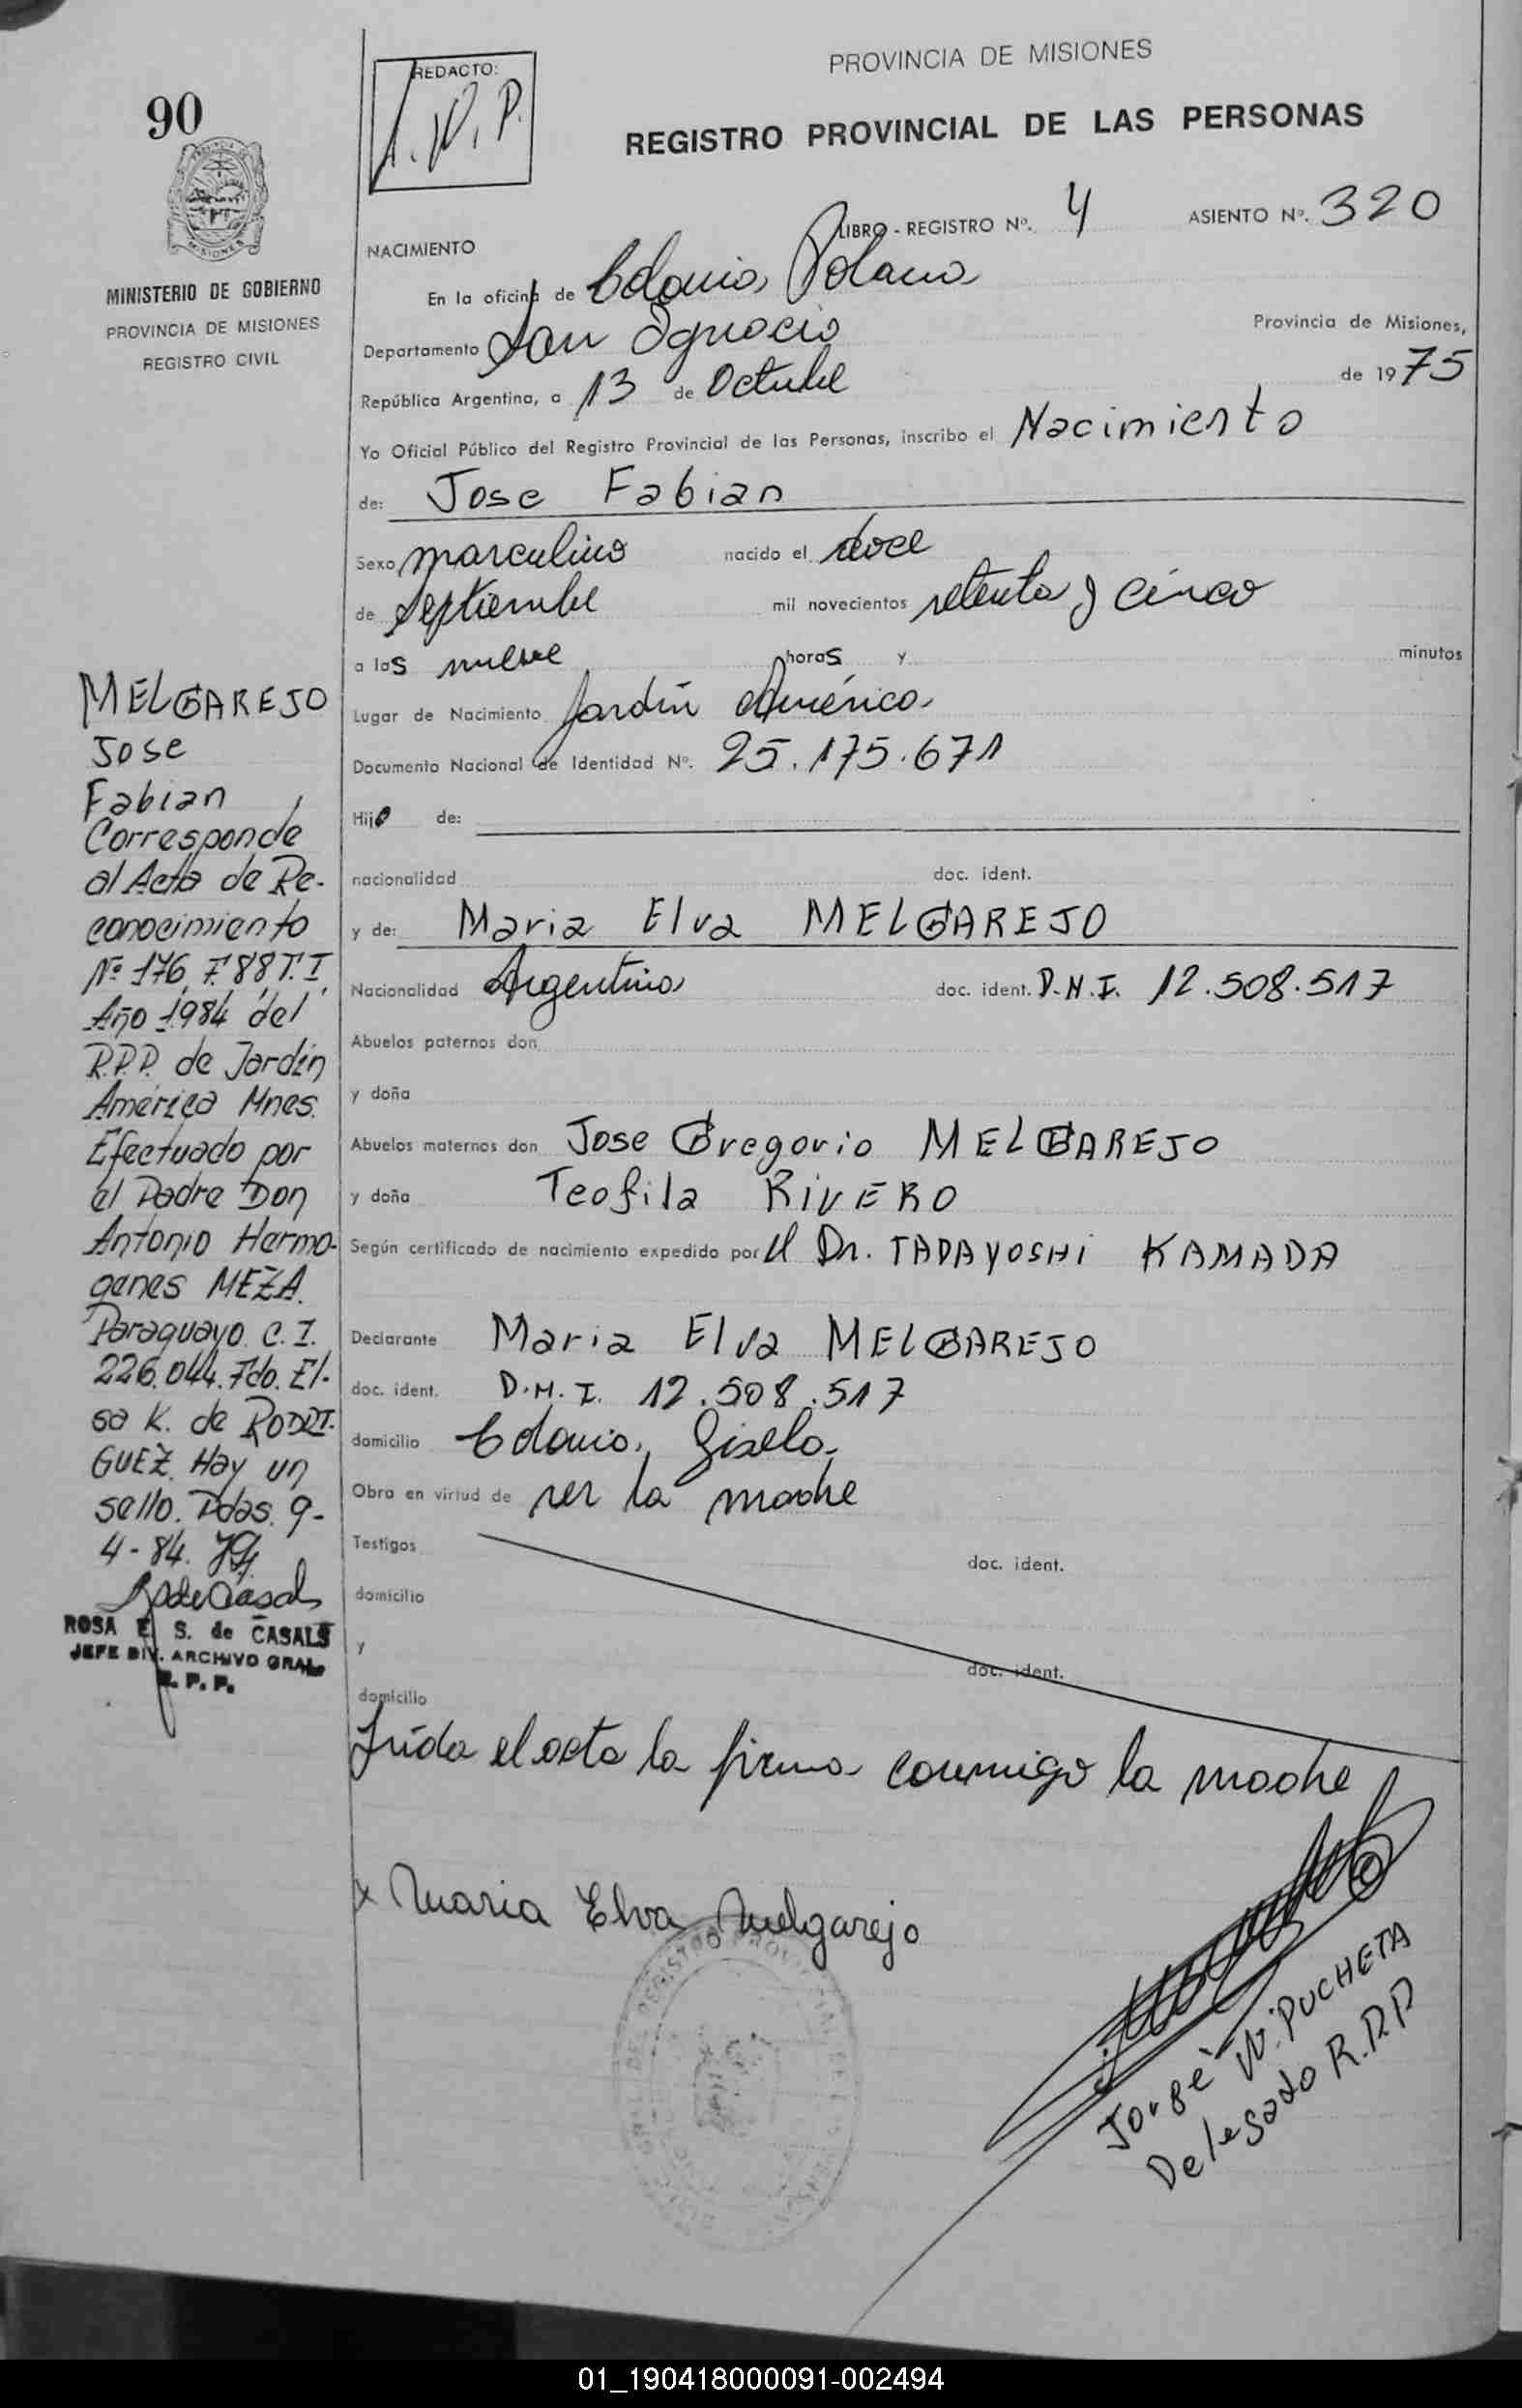 90
MINISTERIO DE GOBIERNO
PROVINCIA DE MISIONES
REGISTRO CIVIL
REDACTO:
J.W.P.
PROVINCIA DE MISIONES
REGISTRO PROVINCIAL DE LAS PERSONAS
LIBRO - REGISTRO Nº. 4 ASIENTO Nº. 320
NACIMIENTO
En la oficina de Colonia Polana
Departamento San Ignacio Provincia de Misiones,
República Argentina, a 13 de Octubre de 1975
Yo Oficial Público del Registro Provincial de las Personas, inscribo el Nacimiento
de: Jose Fabian
Sexo masculino nacido el doce
de septiembre mil novecientos setenta y cinco
a las nueve horas y minutos
Lugar de Nacimiento Jardín América
Documento Nacional de Identidad Nº. 25.175.671
Hijo de:
nacionalidad doc. ident.
y de: Maria Elva MELGAREJO
Nacionalidad Argentina doc. ident. D.N.I. 12.508.517
Abuelos paternos don
y doña
Abuelos maternos don Jose Gregorio MELGAREJO
y doña Teofila RIVERO
Según certificado de nacimiento expedido por el Dr. TADAYOSHI KAMADA
Declarante Maria Elva MELGAREJO
doc. ident. D.N.I. 12.508.517
domicilio Colonia Gisela
Obra en virtud de ser la madre
Testigos doc. ident.
domicilio
y doc. ident.
domicilio
Leída el acta la firma conmigo la madre
x Maria Elva Melgarejo
Jorge W. PUCHETA
Delegado R.P.P
MELGAREJO
Jose
Fabian
Corresponde
al Acta de Re-
conocimiento
Nº 176, F.88, T.I,
Año 1984 del
R.P.P. de Jardín
América Mnes.
Efectuado por
el Padre Don
Antonio Hermo-
genes MEZA.
Paraguayo. C.I.
226.044. Fdo. El-
sa K. de RODRI-
GUEZ. Hay un
sello. Pdas. 9-
4-84.
ROSA E. S. de CASALS
JEFE DIV. ARCHIVO GRAL.
R. P. P.
01_190418000091-002494